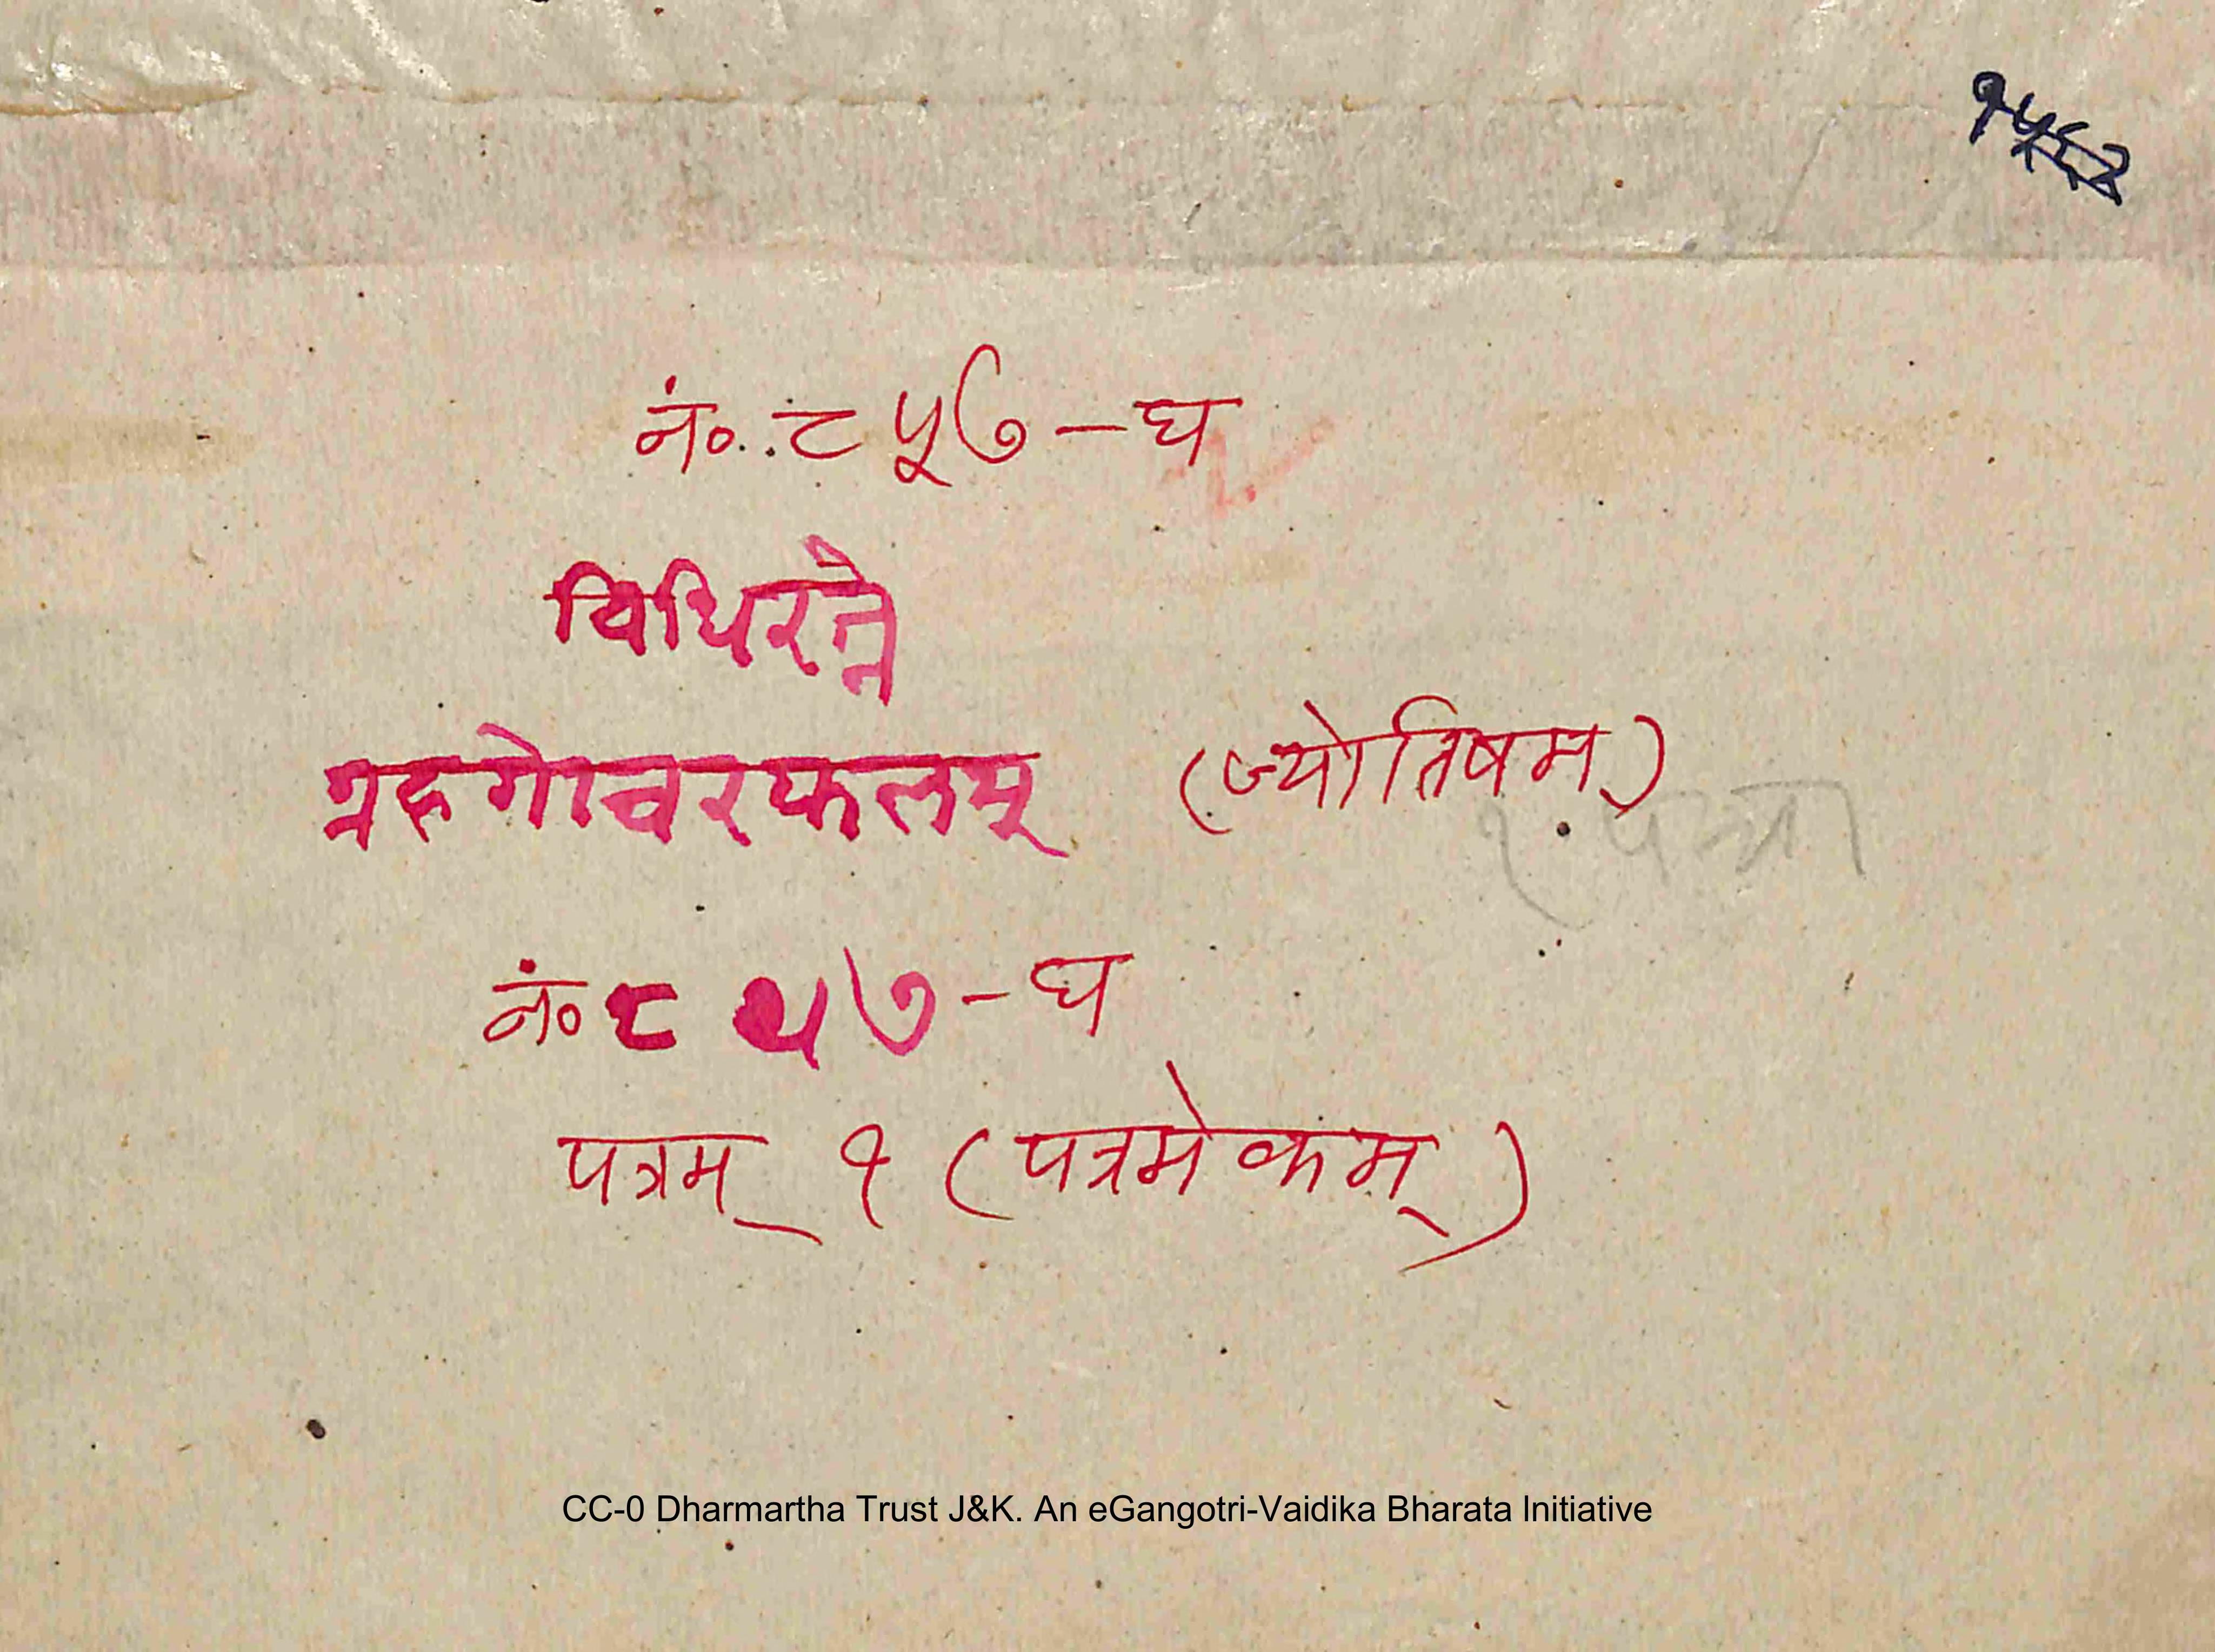 नं०..८५७-घ
विधिरत्ने
ग्रहगोचरफलम् (ज्योतिषम्)
नं० ८५७-घ
पत्रम् १ (पत्रमेकम्)
CC-0 Dharmartha Trust J&K. An eGangotri-Vaidika Bharata Initiative